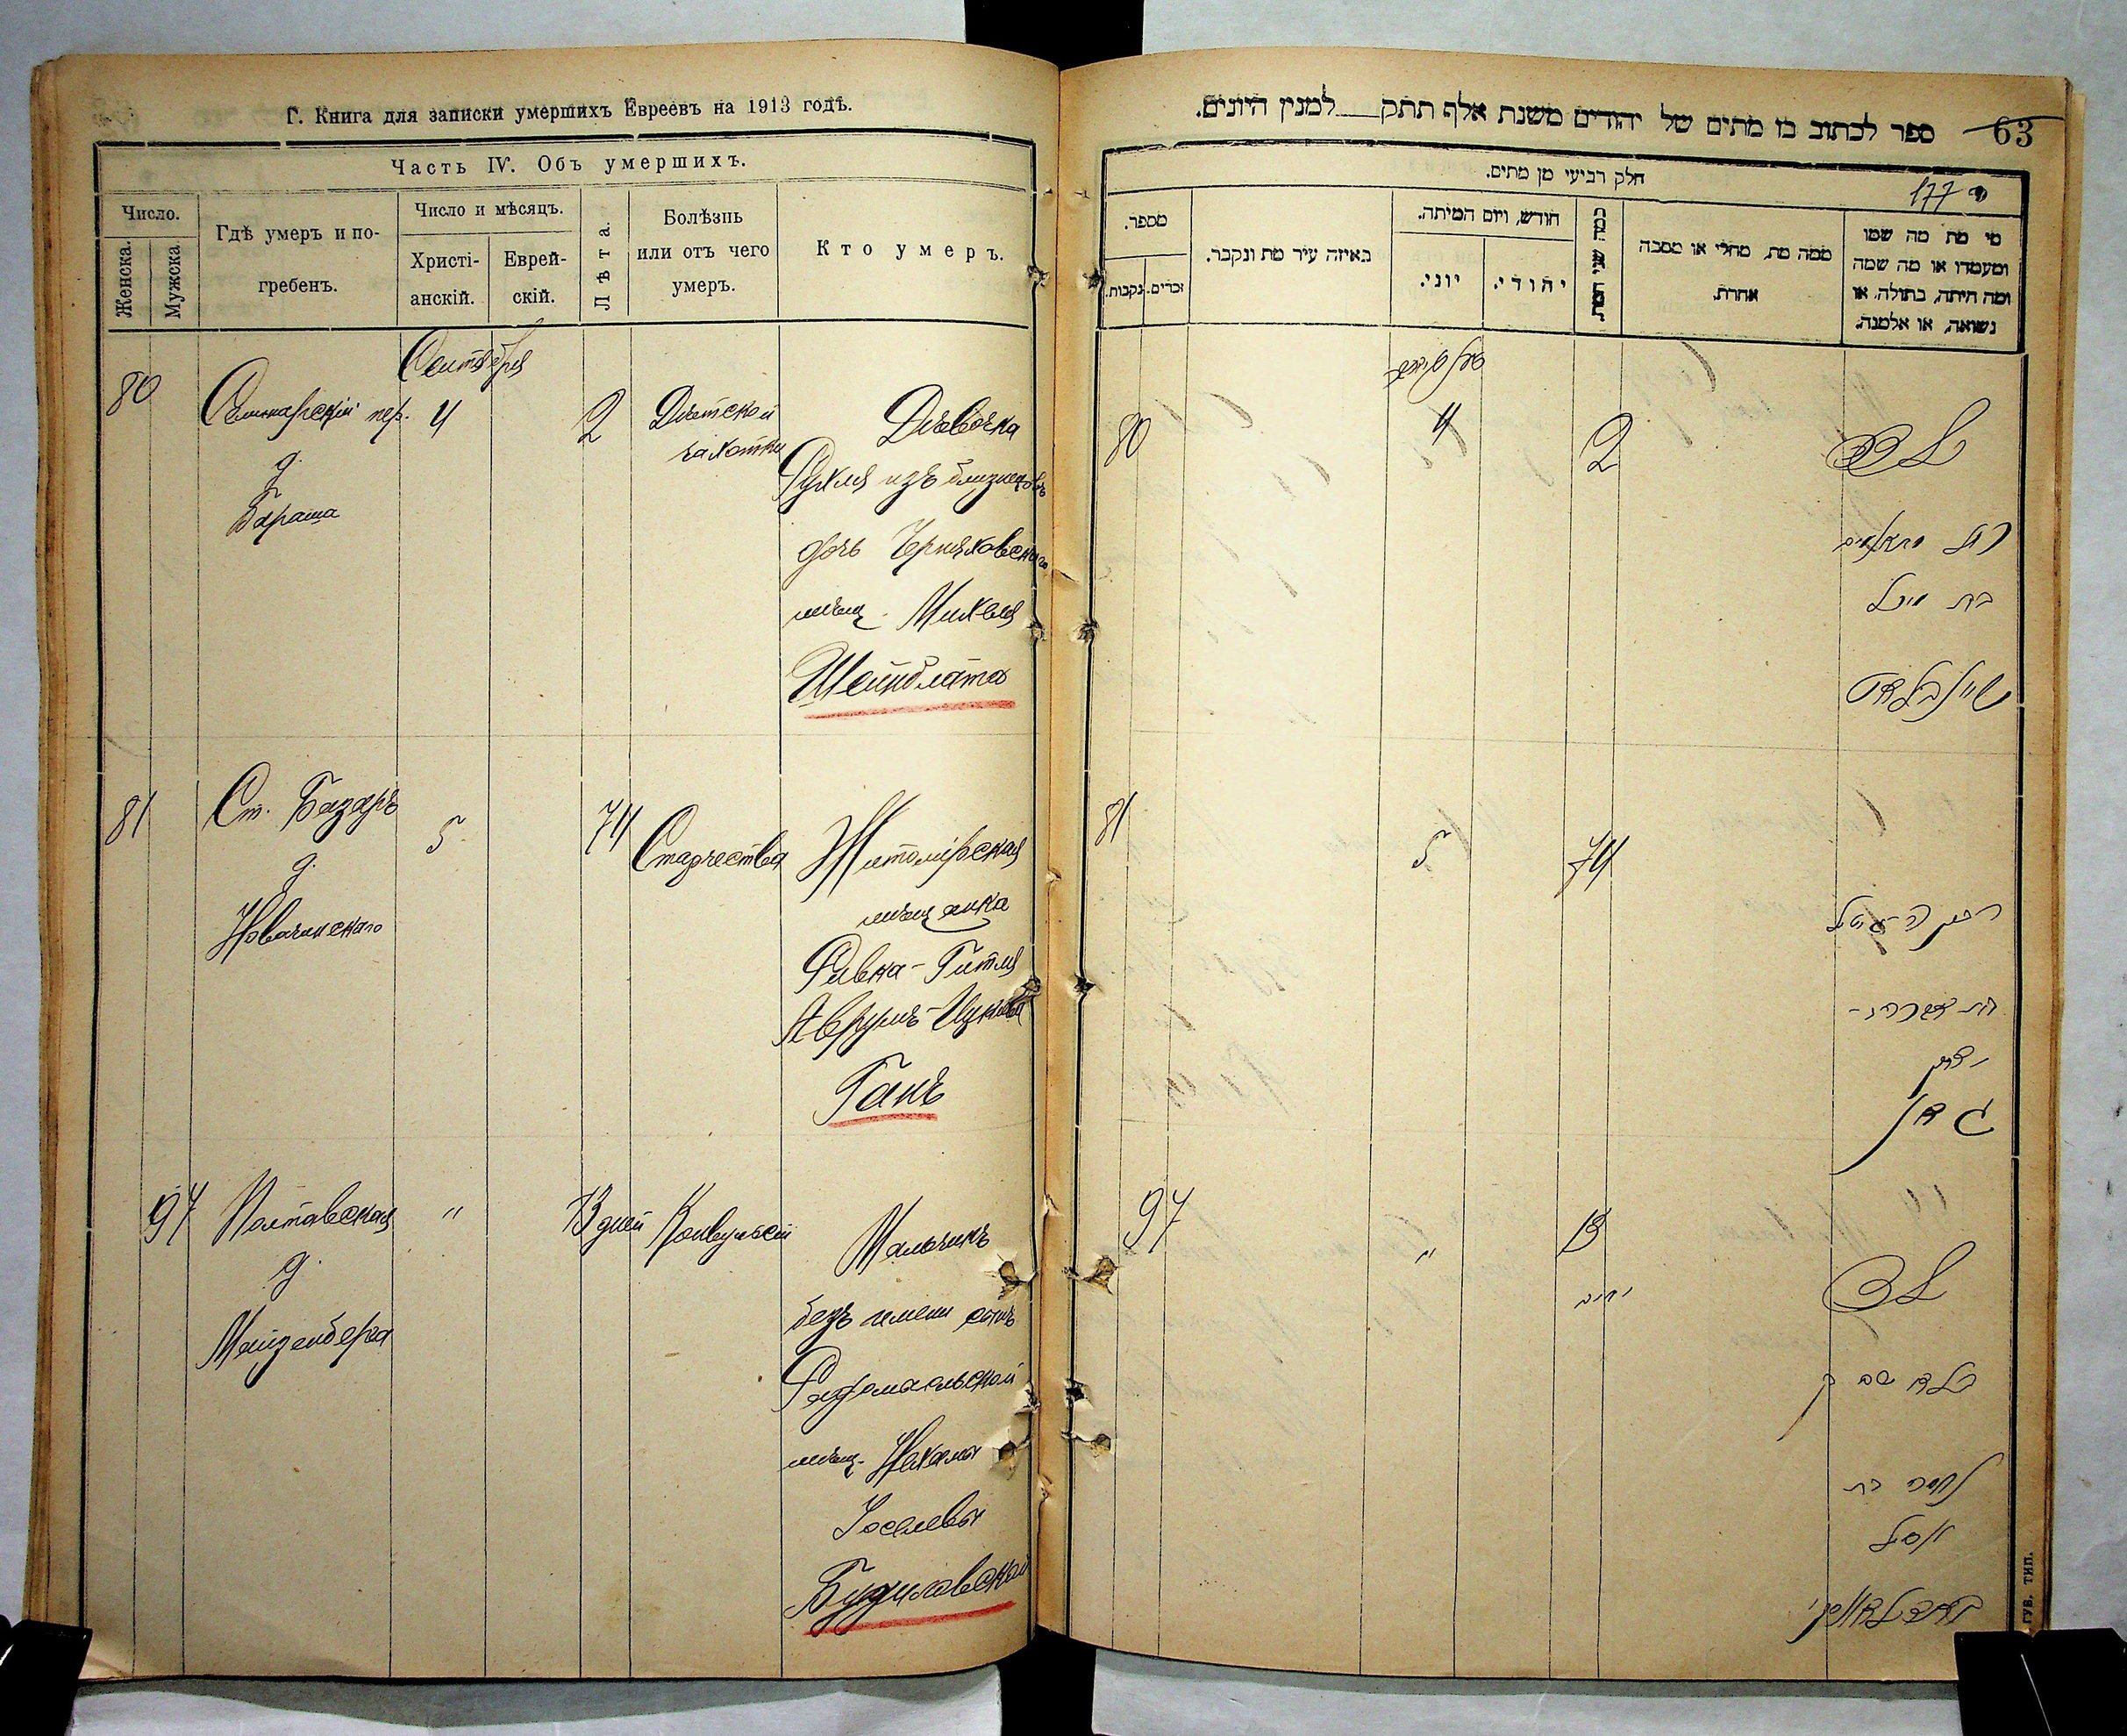 Г. Книга для записки умершихъ Евреевъ на 1913 годъ.
Часть IV. Объ умершихъ.
Число.
Женска.
Мужска.
Гдѣ умеръ и по-
гребенъ.
Число и мѣсяцъ.
Христі-
анскій.
Еврей-
скій.
Лѣта.
Болѣзнь
или отъ чего
умеръ.
Кто умеръ.
Сентября
80
пер.
д.
Бараша
4
2
Дѣтской
чахотки
Дѣвочка
Рухля изъ близнецовъ
дочь Черняховскаго
мѣщ. Михеля
Шейнблата
81
Ст. Базаръ
д.
5
74
Старчества
Житомірская
мѣщанка
Ривка-Гитля
Аврумъ-Ицкова
Ганъ
97
Полтавская
д.
Майзенберга
"
13 дней
Конвульсій
Мальчикъ
безъ имени сынъ
Радомысльской
мѣщ. Нехамы
Іоселевы
ספר לכתוב בו מתים של יהודים משנת אלף תתק למנין היונים.
63
חלק רביעי מן מתים.
177
מספר.
נקבות.
זכרים.
באיזה עיר מת ונקבר.
חודש, ויום המיתה.
יוני.
יהודי.
כמה שני המת.
ממה מת, מחלי או מסבה
אחרת.
מי מת מה שמו
ומעמדו או מה שמה
ומה היתה, בתולה, או
נשואה, או אלמנה.
80
4
2
בת מיכל
שיינבלאט
81
5
74
רבקה גיטל
בת אברהם-
יצחק
גאן
97
"
13
ימים
ילד
נחמה בת
יוסל
ГУБ. ТИП.